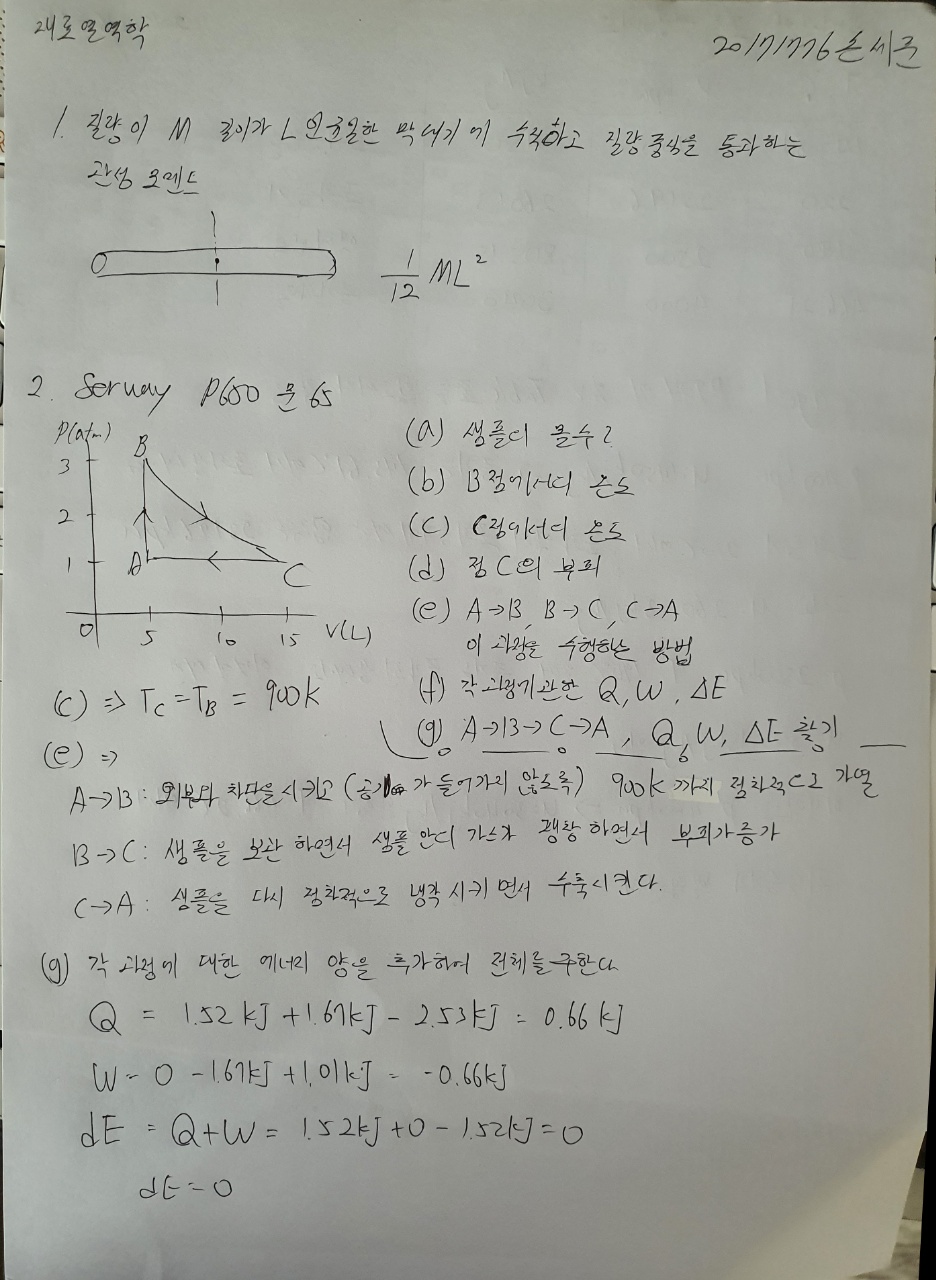 재료열역학
20171776 손세근
1. 질량이 M 길이가 L 인 균일한 막대기에 수직하고 질량중심을 통과하는
관성 모멘트
1/12 ML²
2. Serway P650 문 65
P(atm)
3
2
1
0
5
10
15
V(L)
A
B
C
(a) 샘플의 몰수?
(b) B점에서의 온도
(c) C점에서의 온도
(d) 점 C의 부피
(e) A→B, B→C, C→A
이 과정을 수행하는 방법
(f) 각 과정에 관한 Q, W, ΔE
(g) A→B→C→A, Q, W, ΔE 찾기
(c) ⇒ Tc = TB = 900k
(e) ⇒
A→B : 외부와 차단을 시키고 (공기가 들어가지 않도록) 900k 까지 점차적으로 가열
B→C : 샘플을 보관 하면서 샘플 안의 가스가 팽창 하면서 부피가 증가
C→A : 샘플을 다시 점차적으로 냉각 시키면서 수축시킨다.
(g) 각 과정에 대한 에너지 양을 추가하여 전체를 구한다
Q = 1.52 kJ + 1.67kJ - 2.53kJ = 0.66 kJ
W = 0 - 1.67kJ + 1.01kJ = -0.66kJ
dE = Q+W = 1.52kJ + 0 - 1.52kJ = 0
dE = 0